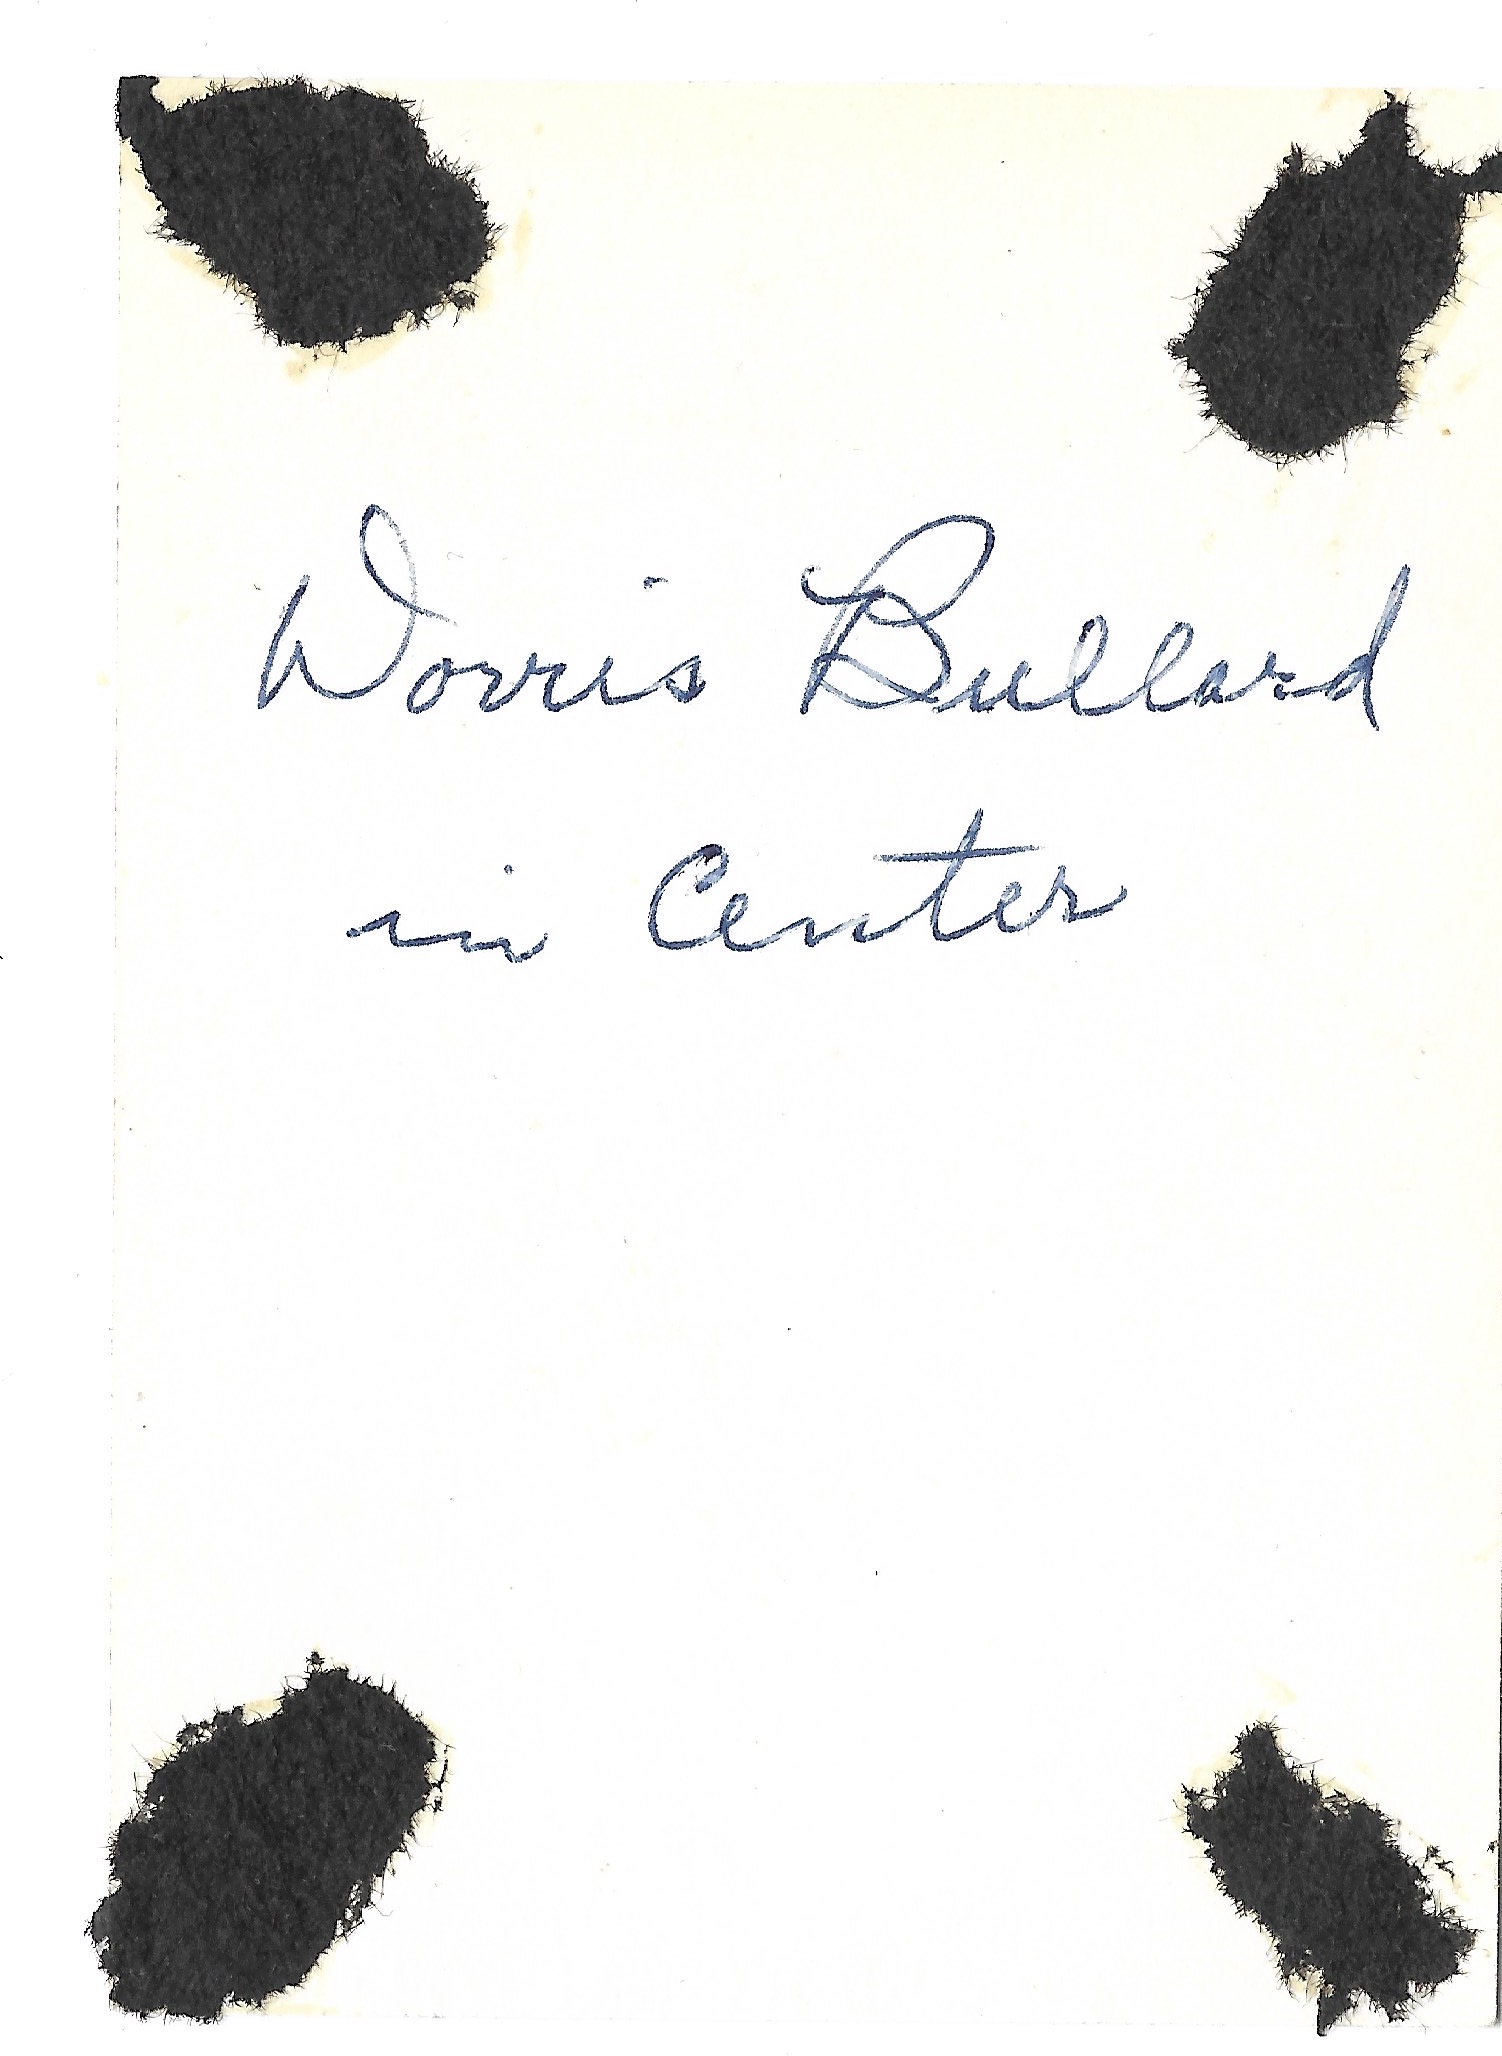 Dorris Bullard
in Center